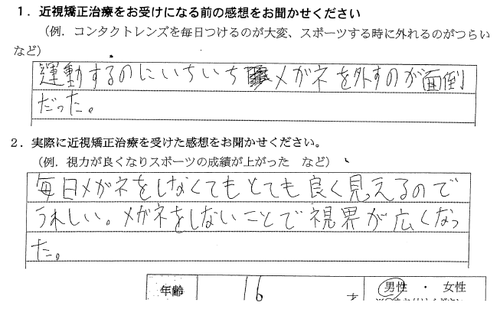 1．近視矯正治療をお受けになる前の感想をお聞かせください
（例．コンタクトレンズを毎日つけるのが大変、スポーツする時に外れるのがつらい
など）
運動するのにいちいちメガネを外すのが面倒
だった。
2．実際に近視矯正治療を受けた感想をお聞かせください。
（例．視力が良くなりスポーツの成績が上がった　など）
毎日メガネをしなくてもとても良く見えるので
うれしい。メガネをしないことで視界が広くなっ
た。
年齢　16　才　男性　・　女性